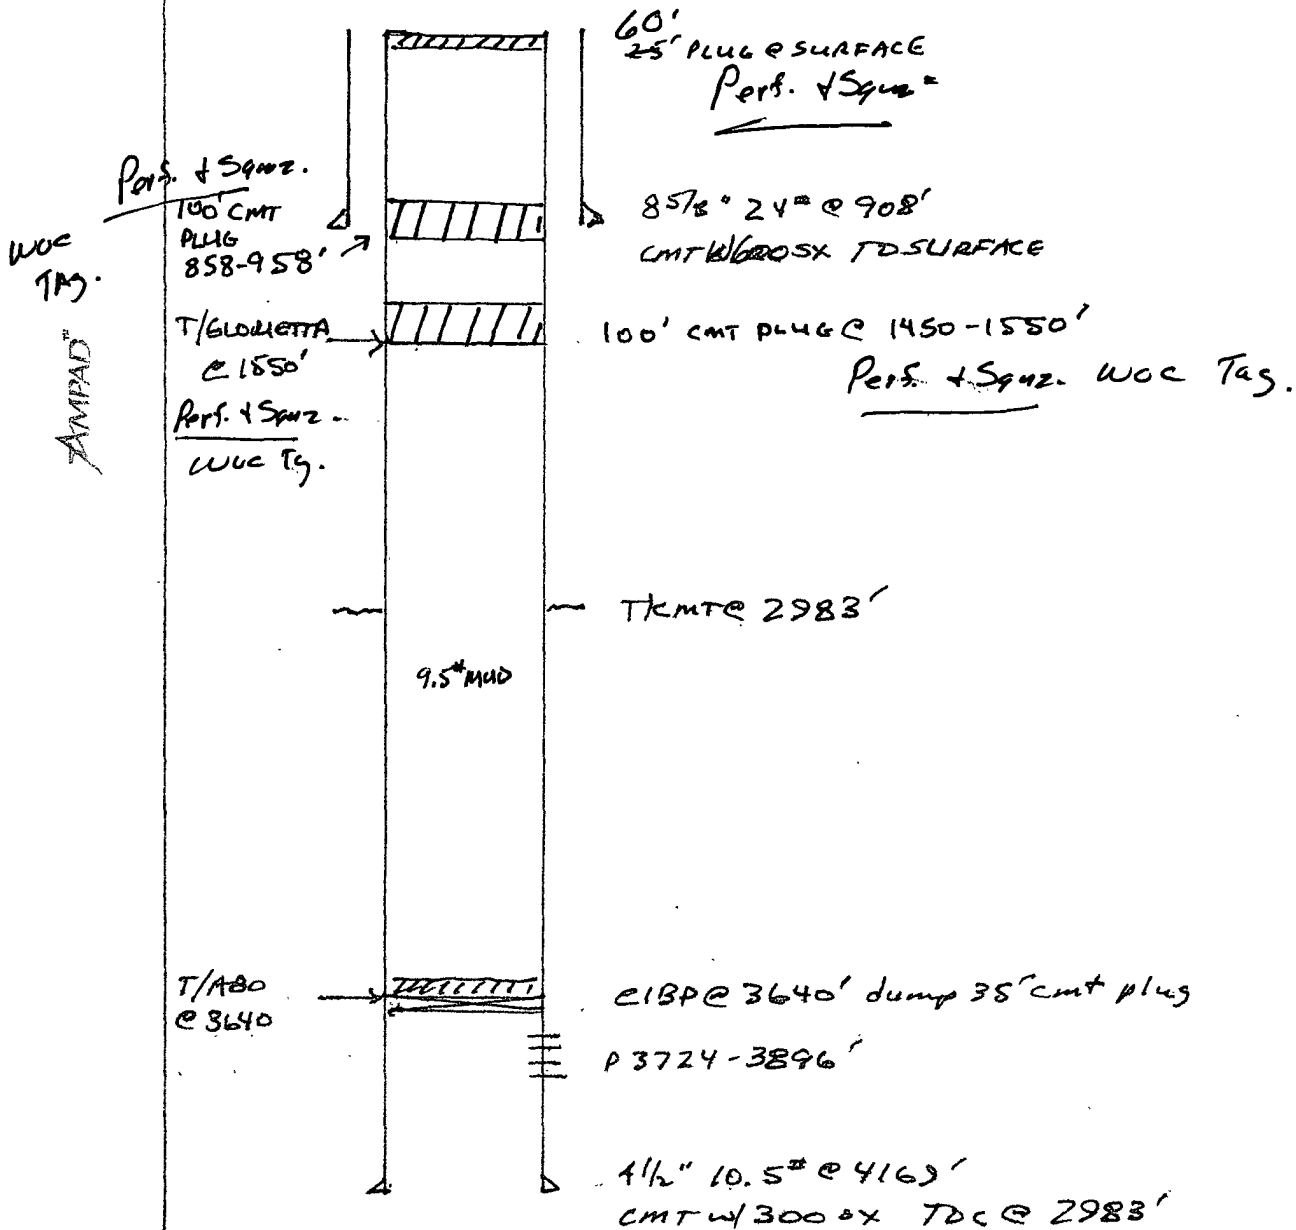 60'
25' PLUG @ SURFACE
Perf. + Sqnz
Perf. + Sqnz.
100' CMT
PLUG
858-958'
WOC
TAg.
8 5/8" 24# @ 908'
CMT W/600SX TO SURFACE
T/GLORIETTA
@ 1550'
Perf. + Sqnz.
WOC Tg.
100' CMT PLUG @ 1450-1550'
Perf. + Sqnz. WOC Tag.
AMPAD™
T/CMT @ 2983'
9.5# MUD
T/ABO
@ 3640
CIBP @ 3640' dump 35' cmt plug
P 3724-3896'
4 1/2" 10.5# @ 4169'
CMT W/ 300 SX TOC @ 2983'